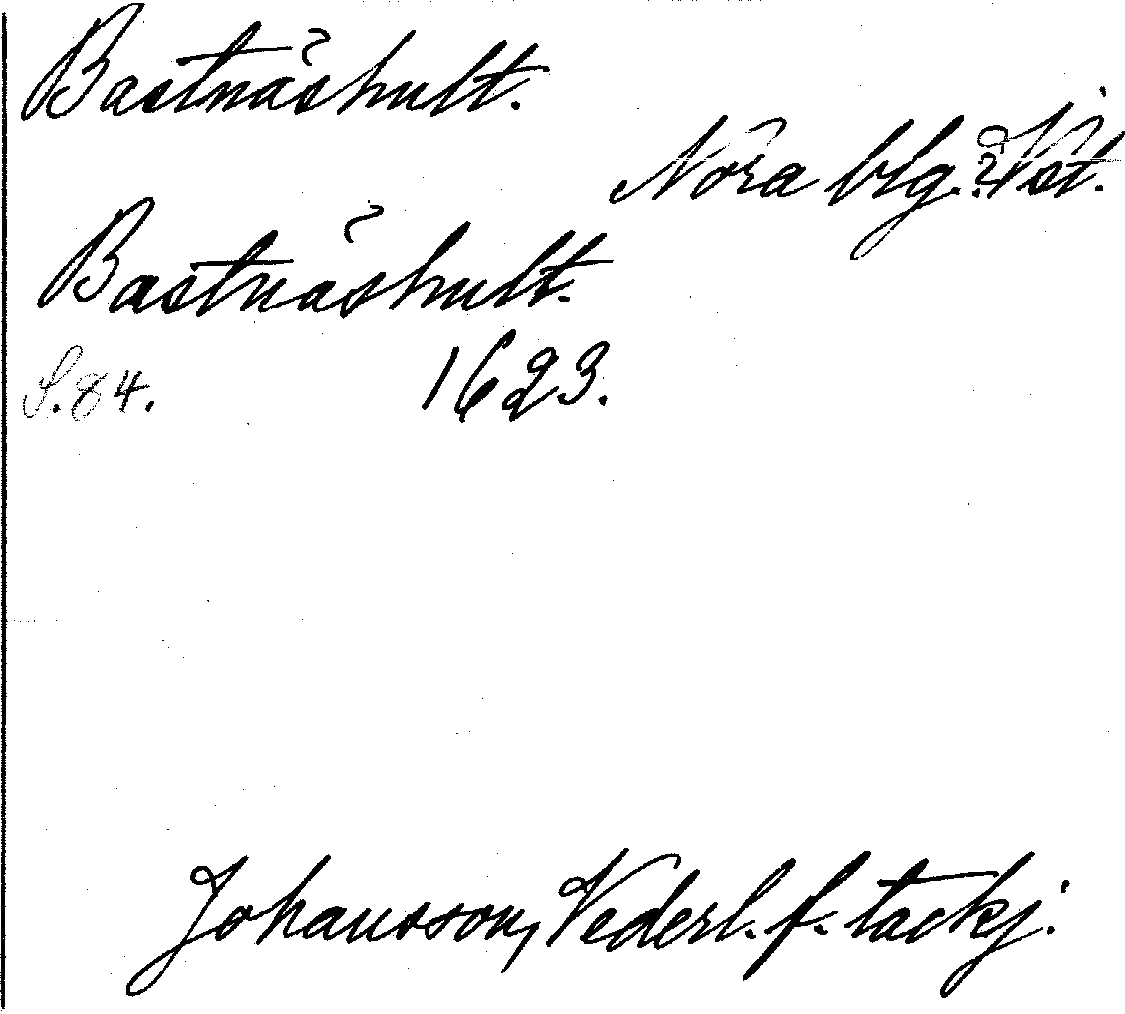 Bastnäshult.
Nora blg. ? Vst.
Bastnäshult.
S. 84. 1623.
Johansson, Vederl. f. tackj.